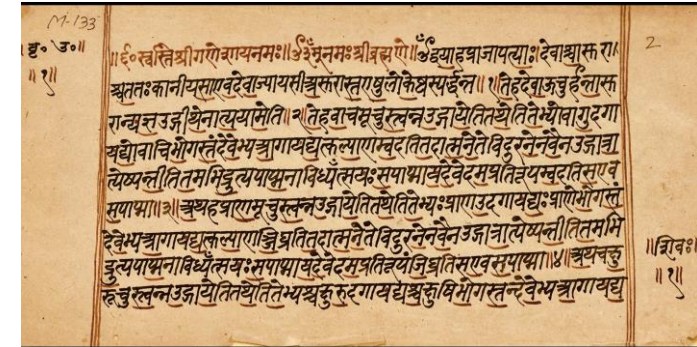 M-133
2
॥ १॥
॥६०स्वस्ति श्रीगणेशायनमः॥ नमः श्रीब्रह्मणे॥ द्वयाहप्राजापत्याः देवाश्चासुरा।
श्चततः कानीयसाएवदेवाज्यायसाअसुरास्तएषुलोकेष्वस्पर्द्धन्त॥१॥तेहदेवाऊचुर्हन्तासु
रान्यज्ञउद्गीथेनात्ययामेति॥२॥तेहवाचमूचुस्त्वन्नउद्गायेतितथेतितेभ्योवागुदगा
यद्योवाचिभोगस्तंदेवेभ्यआगायद्यत्कल्याणम्वदतितदात्मनेतेविदुरनेनवैनउद्गात्रा
त्येष्यन्तीतितमभिद्रुत्यपाप्मनाविध्यँत्सयःसपाप्मायदेवेदमप्रतिरूपम्वदतिसएव
सपाप्मा॥३॥अथहप्राणमूचुस्त्वन्नउद्गायेतितथेतितेभ्यःप्राणउदगायद्यःप्राणेभोगस्तं
देवेभ्यआगायद्यत्कल्याणञ्जिघ्रतितदात्मनेतेविदुरनेनवैनउद्गात्रात्येष्यन्तीतितमभि
द्रुत्यपाप्मनाविध्यँत्सयःसपाप्मायदेवेदमप्रतिरूपंजिघ्रतिसएवसपाप्मा॥४॥अथचक्षु
रूचुस्त्वन्नउद्गायेतितथेतितेभ्यश्चक्षुरुदगायद्यश्चक्षुषिभोगस्तन्देवेभ्यआगायद्य
॥शिवः॥
॥१॥